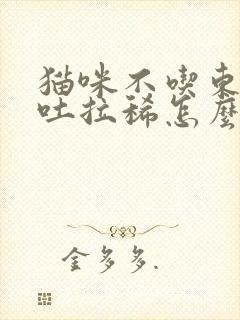 猫咪不喫東
吐拉稀怎麽
金多多.